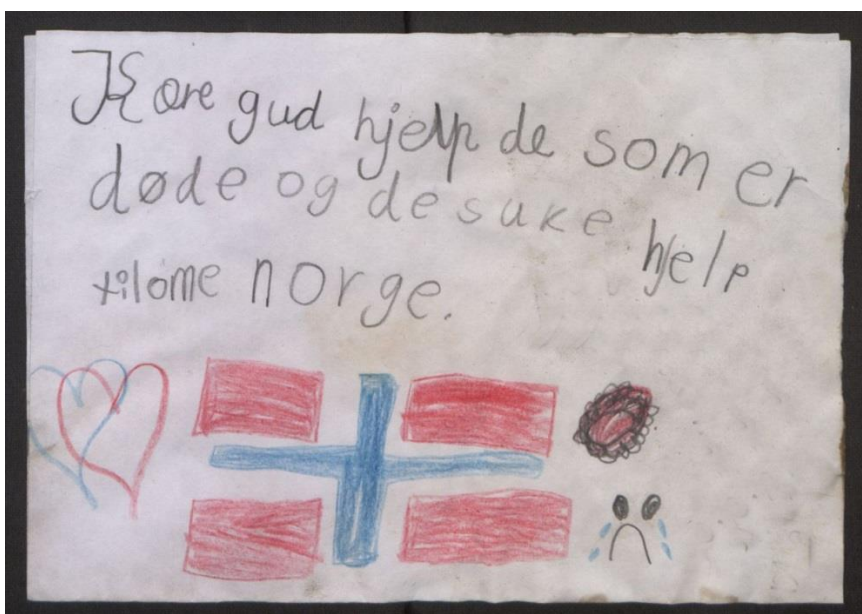 Kære gud hjelp de som er
døde og de suke hjelp
tilome norge.